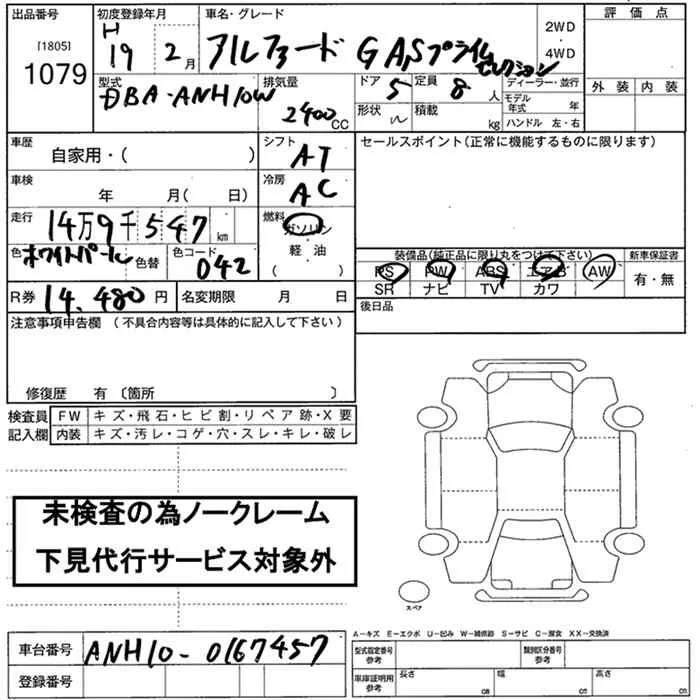 出品番号 初度登録年月 車名・グレード 評価点
[1805] 1079 H 19 2月 アルファード G AS プライムセレクション 2WD・4WD
外装 内装
型式 排気量 ドア 定員 ディーラー・並行
DBA-ANH10W 2400CC 5 8人 モデル年式 年
形状 積載 kg ハンドル 左・右
車歴 シフト セールスポイント(正常に機能するものに限ります)
自家用・( ) AT
車検 冷房
年 月( 日) AC
走行 燃料
14万9千547km ガソリン
軽・油
( )
色 ホワイトパール 色替 色コード 042
装備品(純正品に限り丸をつけて下さい) 新車保証書
PS PW ABS エアB AW 有・無
SR ナビ TV カワ
R券 14,480円 名変期限 月 日
後日品
注意事項申告欄 (不具合内容等は具体的に記入して下さい)
修復歴 有 〔箇所 〕
検査員 FW キズ・飛石・ヒビ割・リペア跡・X要
記入欄 内装 キズ・汚レ・コゲ・穴・スレ・キレ・破レ
未検査の為ノークレーム
下見代行サービス対象外
スペア
A-キズ E-エクボ U-凹み W-補修跡 S-サビ C-腐食 XX-交換済
車台番号 ANH10-0167457
型式指定番号 参考 類別区分番号 参考
登録番号
車庫証明用 参考 長さ cm 幅 cm 高さ cm